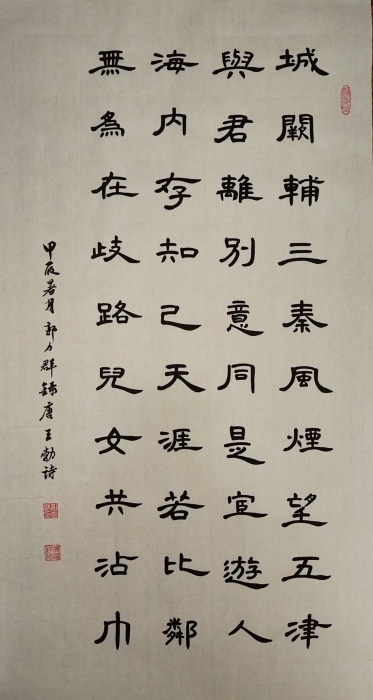 城闕輔三秦風煙望五津
與君離別意同是宦遊人
海内存知己天涯若比鄰
無為在歧路兒女共沾巾
甲辰暑月郭力群錄唐王勃诗